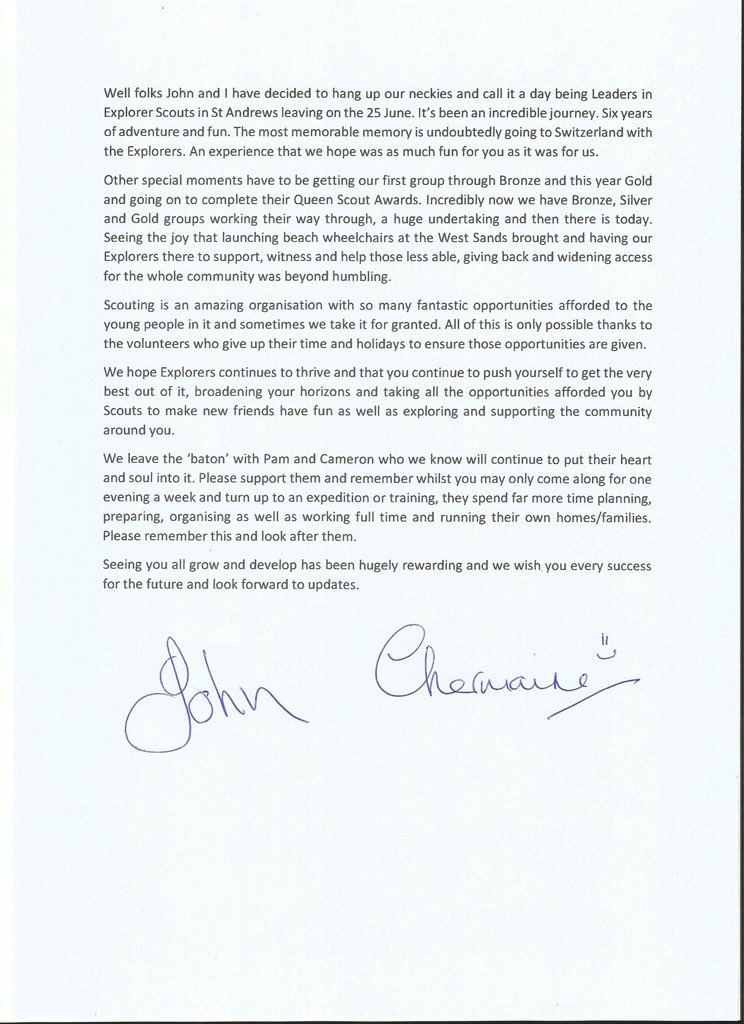 Well folks John and I have decided to hang up our neckies and call it a day being Leaders in
Explorer Scouts in St Andrews leaving on the 25 June. It's been an incredible journey. Six years
of adventure and fun. The most memorable memory is undoubtedly going to Switzerland with
the Explorers. An experience that we hope was as much fun for you as it was for us.
Other special moments have to be getting our first group through Bronze and this year Gold
and going on to complete their Queen Scout Awards. Incredibly now we have Bronze, Silver
and Gold groups working their way through, a huge undertaking and then there is today.
Seeing the joy that launching beach wheelchairs at the West Sands brought and having our
Explorers there to support, witness and help those less able, giving back and widening access
for the whole community was beyond humbling.
Scouting is an amazing organisation with so many fantastic opportunities afforded to the
young people in it and sometimes we take it for granted. All of this is only possible thanks to
the volunteers who give up their time and holidays to ensure those opportunities are given.
We hope Explorers continues to thrive and that you continue to push yourself to get the very
best out of it, broadening your horizons and taking all the opportunities afforded you by
Scouts to make new friends have fun as well as exploring and supporting the community
around you.
We leave the 'baton' with Pam and Cameron who we know will continue to put their heart
and soul into it. Please support them and remember whilst you may only come along for one
evening a week and turn up to an expedition or training, they spend far more time planning,
preparing, organising as well as working full time and running their own homes/families.
Please remember this and look after them.
Seeing you all grow and develop has been hugely rewarding and we wish you every success
for the future and look forward to updates.
John Chermaine